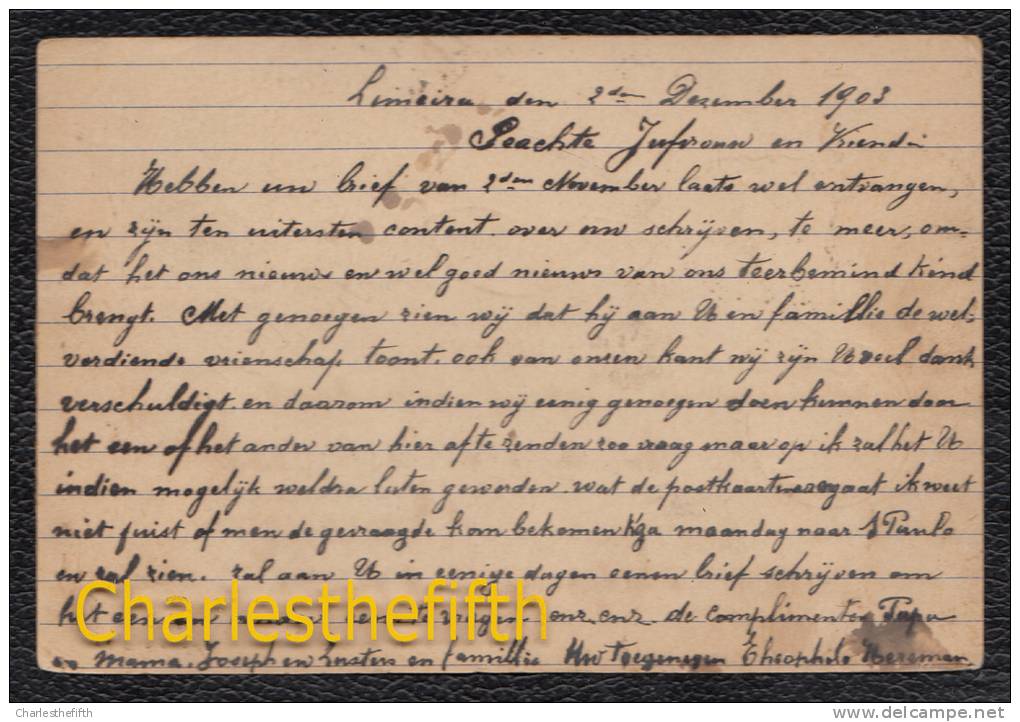 Limeira den 2den Dezember 1903
Geachte Jufvrouw en Vriendin
Hebben uw brief van 2den November laats wel ontvangen,
en zijn ten uitersten content over uw schrijven, te meer, om-
dat het ons nieuws en wel goed nieuws van ons teerbemind kind
brengt. Met genoegen zien wij dat hij aan U en famillie de wel-
verdiende vrienschap toont. ook van onzen kant wij zijn U veel dank
verschuldigt. en daarom indien wij eenig genoegen doen kunnen door
het een of het ander van hier af te zenden zoo vraag maar op ik zal het U
indien mogelijk weldra laten geworden. wat de postkaarten gaat ik weet
niet juist of men de gevraagde kan bekomen k'ga maandag naar S Paulo
en zal zien. zal aan U in eenige dagen eenen brief schrijven om
het een en vragen enz. enz. de complimenten Papa
en Mama, Joseph en Zusters en famillie Uw toegenegen Theophile Hereman
Charlesthefifth
Charlesthefifth
www.delcampe.net